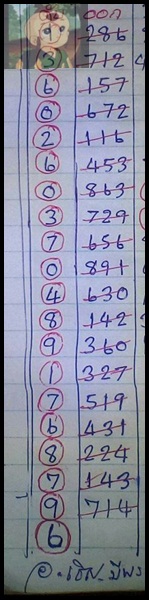 ออก
1 286
3 712 4
6 157
0 672
2 116
6 453
0 863
3 729
7 656
0 891
4 630
8 142
9 360
1 327
7 519
6 431
8 224
7 143
9 714
6